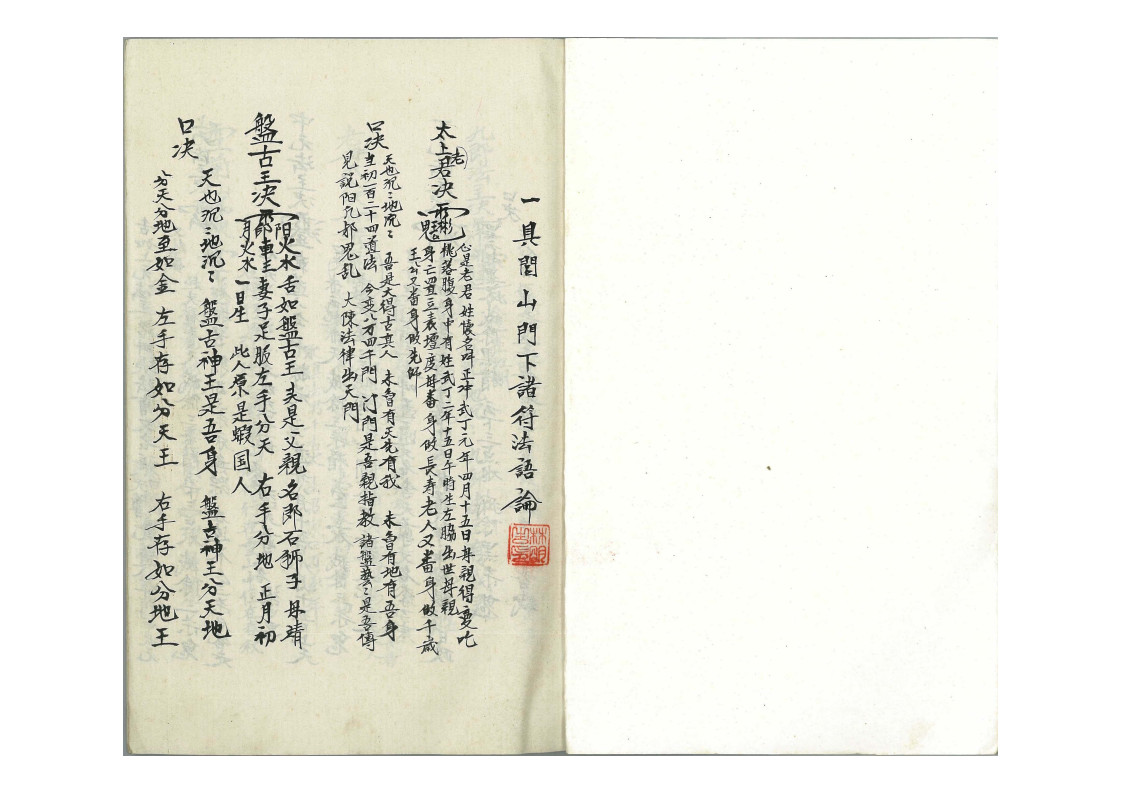 一具閭山門下諸符法語論
太上老君決
心是老君 姓懷名叫正冲 武丁元年四月十五日母親得
梡落腹身中有姓武丁二年十五日午時生左脇出世母親
身亡四置立表壇度母番身做長寿老人又番身做千歲
王公又番身做先師
口决
天也沉〻地沉〻 吾是大得古真人 未曾有天先有我 未曾有地有吾身
当初一百二十四道法 今変八万四千門 门門是吾親指教 諸盤藝〻是吾傳
見說阳凡邪鬼乱 大陳法律出天門
盤古王决
阳火水舌如盤古王 夫是父親名郎石獅子 母靖
妻子足服左手分天 右手分地 正月初
月火水一日生 此人原是蝦国人
口决
天也沉〻地沉〻 盤古神王是吾身 盤古神王分天地
分天分地至如金 左手存如分天王 右手存如分地王